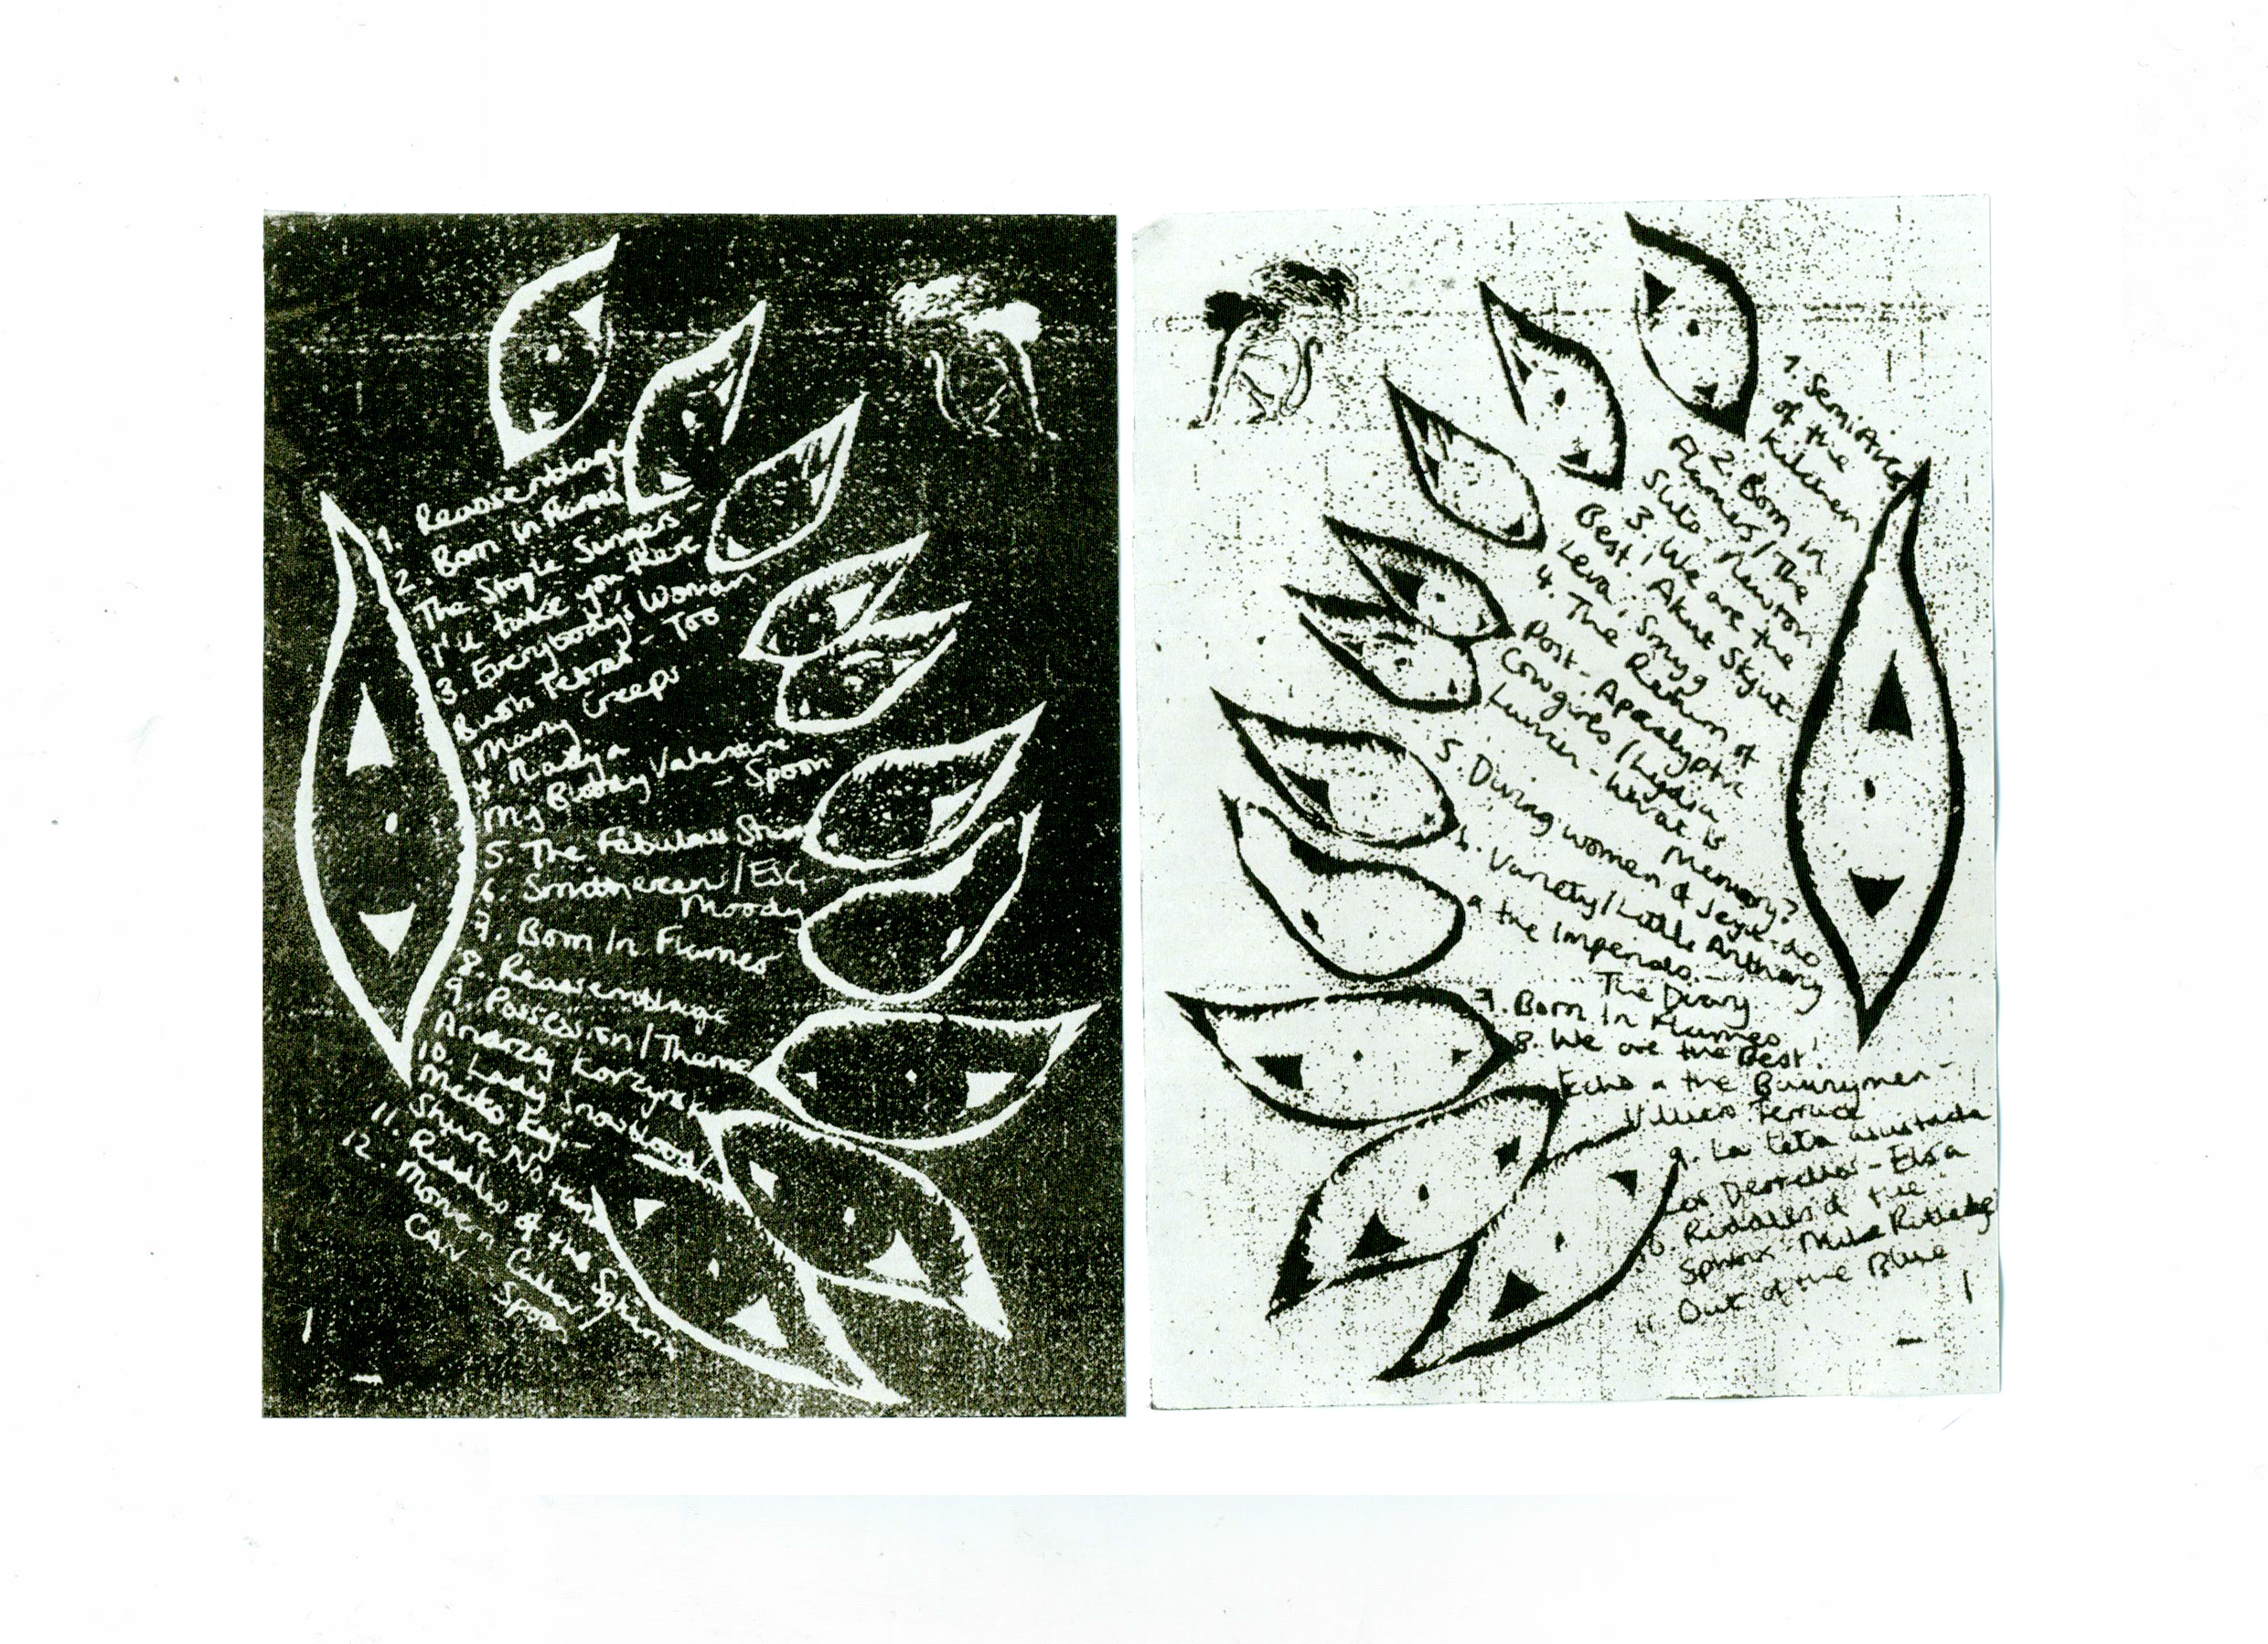 1. Reassemblage
2. Born In Flames
The Staple Singers -
I'll take you there
3. Everybody's Woman
Bush Tetras - Too
Many Creeps
4. Nadja
My Bloody Valentine
- Spoon
5. The Fabulous Stains
6. Smithereens / ESG -
Moody
7. Born In Flames
8. Reassemblage
9. Possession / Theme
Andrzej Korzynski
10. Lady Snowblood /
Meiko Kaji -
Shura No Hana
11. Riddles of the Sphinx
12. Morvern Callar /
CAN -
Spoon
1. Semiotics
of the
Kitchen
2. Born In
Flames / The
Slits - Newton
3. We are the
Best! Akne
Leva, Smygg
4. The Return of
Post-Apocalyptic
Cowgirls / Lydia
Lunch - What is
Memory?
5. Diving women of Jeju-do
6. Variety / Little Anthony
& the Imperials -
The Diary
7. Born In Flames
8. We are the Best!
Echo & the Bunnymen -
Villiers Terrace
9. La teta asustada
Los Destellos - Elsa
10. Riddles of the
Sphinx - Mike Ratledge
11. Out of the Blue